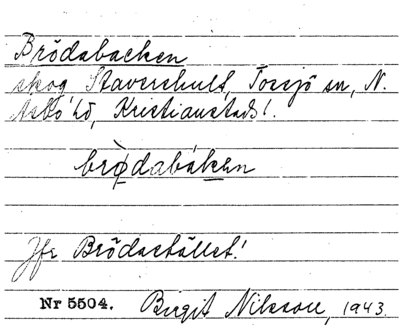 Brödabacken
skog, Stavershult, Tossjö sn, N.
Åsbo hd, Kristianstads l.
brø̀dabáken
Jfr Brödastället!
Nr 5504. Birgit Nilsson, 1943.